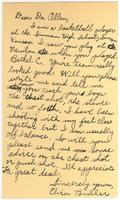 Dear Dr. Allen,
I am a basketball player
at the Inman High School, Inman,
Kansas. I saw you play at
Newton when you played
Bethel C. You're team really
looked good. Will you please
write me and tell me
how you teach your boys
the chest shot, the stance
and so forth. I have been
shooting with my feet close
together but I am usually
off balance, so will you
please send me some
advice on the chest shot
or push shot. I'll appreciate
it a great deal.
Sincerely yours,